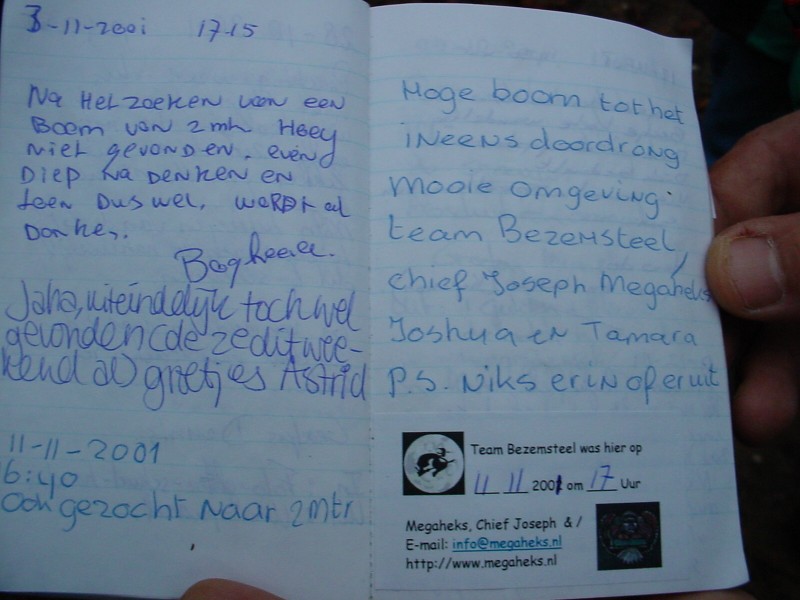 3-11-2001 17.15
Na Het zoeken van een
Boom van 2 mtr Heey
niet gevonden. even
Diep na Denken en
teen Dus wel, wordt al
Donker.
Bagheera.
Jaha, uiteindelijk toch wel
gevonden (de 2e dit wee-
kend al) groetjes Astrid
11-11-2001
16:40
Ook gezocht naar 2mtr
Hoge boom tot het
ineens doordrong
Mooie omgeving.
team Bezemsteel,
Chief Joseph Megaheks
Joshua en Tamara
P.S. Niks erin of eruit
Team Bezemsteel was hier op
11 11 2001 om 17 Uur
Megaheks, Chief Joseph & /
E-mail: info@megaheks.nl
http://www.megaheks.nl